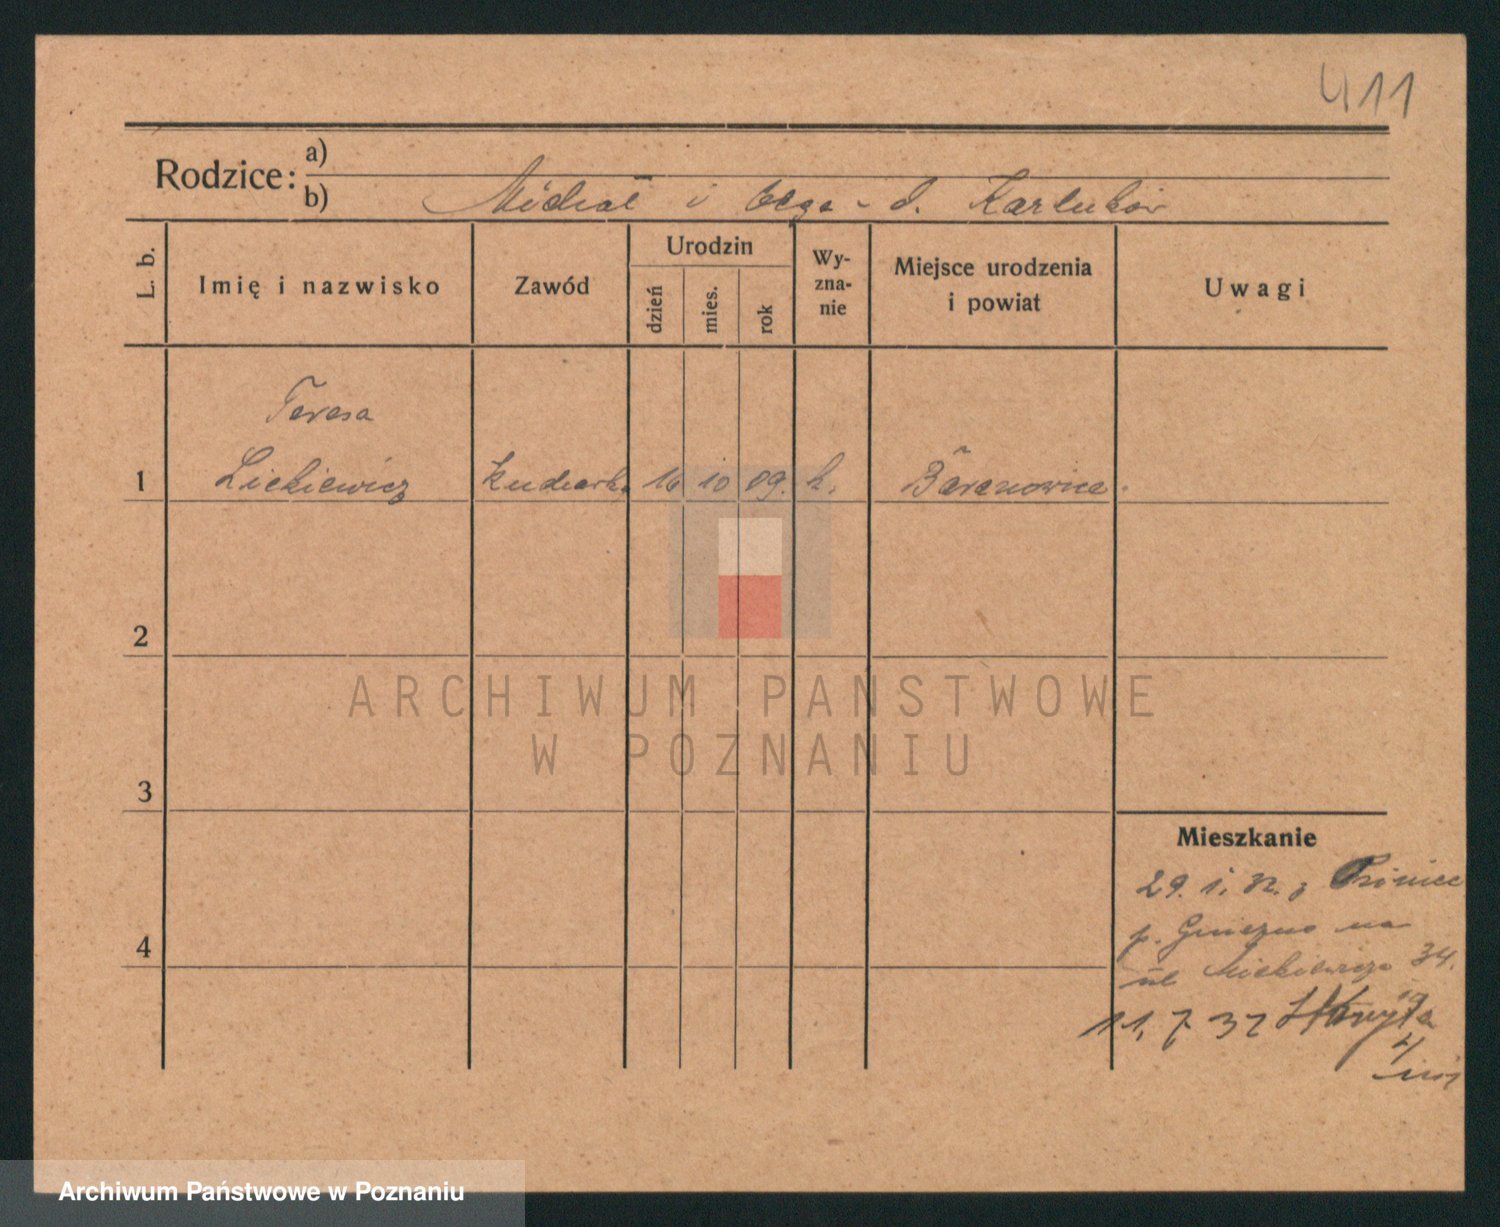 411
Rodzice: a)
b) Michał i Olga d. Karluków
L. b.
Imię i nazwisko
Zawód
Urodzin
dzień
mies.
rok
Wy-
zna-
nie
Miejsce urodzenia
i powiat
Uwagi
Teresa
1 Lickiewicz kucharka 16 10 09. k. Baranowice.
2
3
4
Mieszkanie
29. 1. 32. z
p. Gniezno na
ul Mickiewicza 34.
11, 7. 32
ARCHIWUM PAŃSTWOWE
W POZNANIU
Archiwum Państwowe w Poznaniu